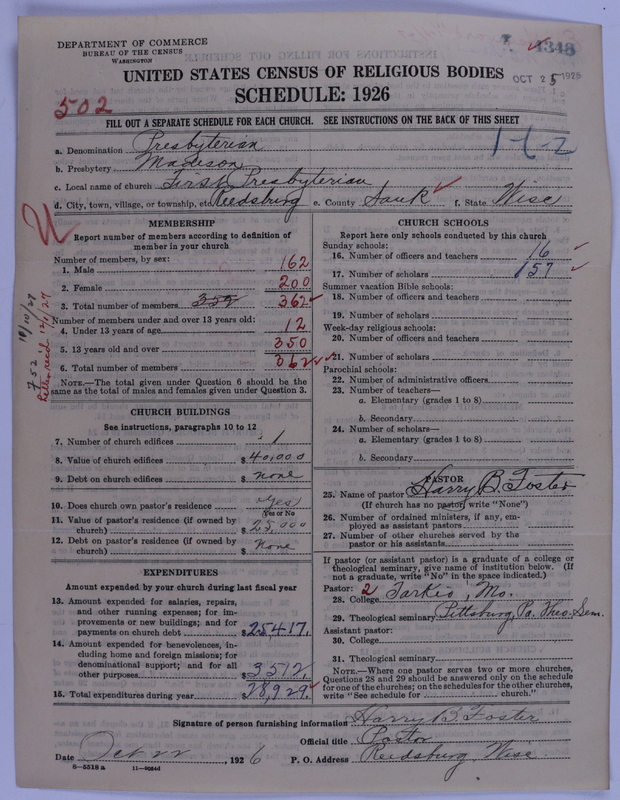 DEPARTMENT OF COMMERCE
BUREAU OF THE CENSUS
WASHINGTON
4348
OCT 25 1926
UNITED STATES CENSUS OF RELIGIOUS BODIES
SCHEDULE: 1926
502
FILL OUT A SEPARATE SCHEDULE FOR EACH CHURCH. SEE INSTRUCTIONS ON THE BACK OF THIS SHEET
a. Denomination Presbyterian
b. Presbytery Madison
c. Local name of church First Presbyterian
d. City, town, village, or township, etc. Reedsburg e. County Sauk f. State Wisc
MEMBERSHIP
Report number of members according to definition of
member in your church
Number of members, by sex:
1. Male 162
2. Female 200
3. Total number of members 352 362
Number of members under and over 13 years old:
4. Under 13 years of age 12
5. 13 years old and over 350
6. Total number of members 362
NOTE.—The total given under Question 6 should be the
same as the total of males and females given under Question 3.
CHURCH BUILDINGS
See instructions, paragraphs 10 to 12
7. Number of church edifices 1
8. Value of church edifices $40,000
9. Debt on church edifices $none
10. Does church own pastor's residence Yes
(Yes or No)
11. Value of pastor's residence (if owned by
church) $25,000
12. Debt on pastor's residence (if owned by
church) $None
EXPENDITURES
Amount expended by your church during last fiscal year
13. Amount expended for salaries, repairs,
and other running expenses; for im-
provements or new buildings; and for
payments on church debt $25417.
14. Amount expended for benevolences, in-
cluding home and foreign missions; for
denominational support; and for all
other purposes $3512.
15. Total expenditures during year $28,929.
CHURCH SCHOOLS
Report here only schools conducted by this church
Sunday schools:
16. Number of officers and teachers 16
17. Number of scholars 157
Summer vacation Bible schools:
18. Number of officers and teachers
19. Number of scholars
Week-day religious schools:
20. Number of officers and teachers
21. Number of scholars
Parochial schools:
22. Number of administrative officers
23. Number of teachers—
a. Elementary (grades 1 to 8)
b. Secondary
24. Number of scholars—
a. Elementary (grades 1 to 8)
b. Secondary
PASTOR
25. Name of pastor Harry B. Foster
(If church has no pastor, write "None")
26. Number of ordained ministers, if any, em-
ployed as assistant pastors
27. Number of other churches served by the
pastor or his assistants
If pastor (or assistant pastor) is a graduate of a college or
theological seminary, give name of institution below. (If
not a graduate, write "No" in the space indicated.)
Pastor: 2
28. College Tarkio, Mo.
29. Theological seminary Pittsburg, Pa. Theo. Sem.
Assistant pastor:
30. College
31. Theological seminary
NOTE.—Where one pastor serves two or more churches,
Questions 28 and 29 should be answered only on the schedule
for one of the churches; on the schedules for the other churches,
write "See schedule for church."
Signature of person furnishing information Harry B. Foster
Official title Pastor
Date Oct 22, 1926 P. O. Address Reedsburg, Wisc
8—5518 a 11—9094d